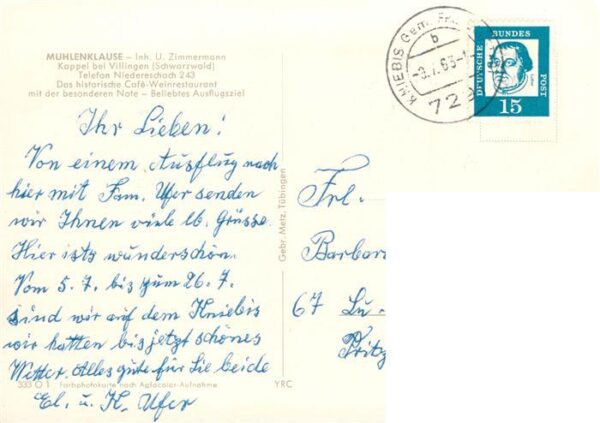 MÜHLENKLAUSE – Inh. U. Zimmermann
Kappel bei Villingen (Schwarzwald)
Telefon Niedereschach 243
Das historische Café-Weinrestaurant
mit der besonderen Note – Beliebtes Ausflugsziel
Ihr Lieben!
Von einem Ausflug nach
hier mit Fam. Ufer senden
wir Ihnen viele lb. Grüsse.
Hier ists wunderschön.
Vom 5.7. bis zum 26.7.
sind wir auf dem Kniebis
wir hatten bis jetzt schönes
Wetter. Alles gute für Sie beide
El. u. H. Ufer
333 O 1 Farbphotokarte nach Agfacolor-Aufnahme.
Gebr. Metz, Tübingen
YRC
KNIEBIS Gem. Fr
b
-9.7.63-1
729
DEUTSCHE BUNDES POST
15
Frl.
Barbar
67 Lu-
Pritz